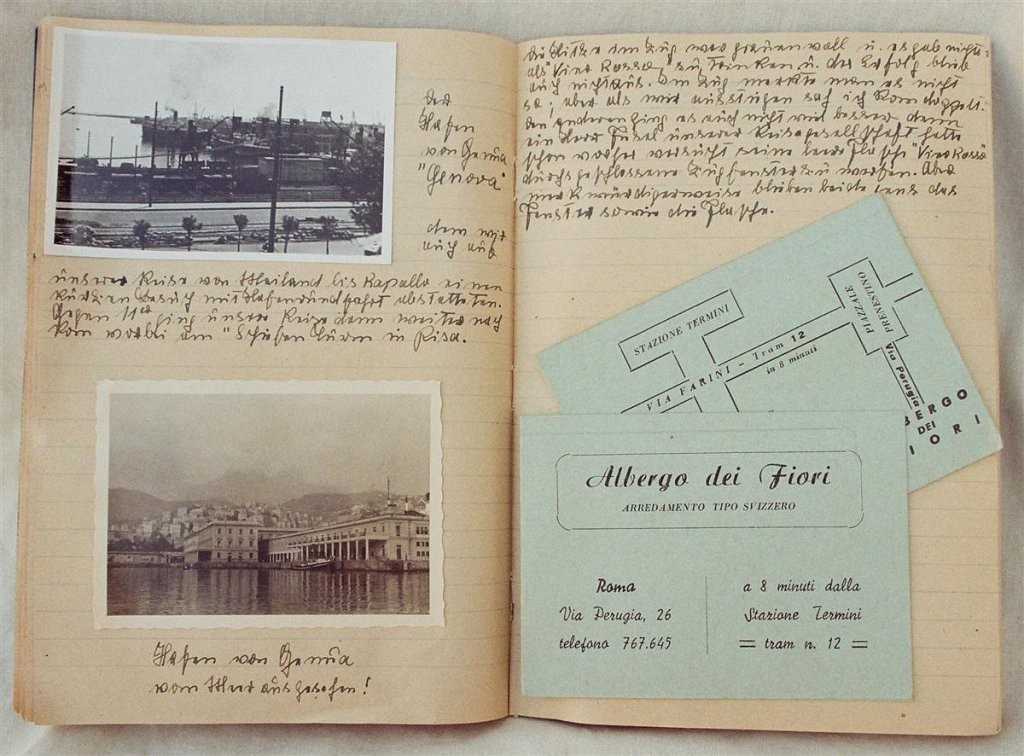 Der
Hafen
von Genua
"Genova"
dem wir
auch auf
unserer Reise von Mailand bis Rapallo einen
kurzen Besuch mit Hafenrundfahrt abstatteten.
Gegen 11 ging unsere Reise dann weiter nach
Rom vorbei am "Schiefen Turm in Pisa.
Hafen von Genua
vom Meer aus gesehen!
Die Hitze im Zug war grauenvoll u. es gab nichts
als "Vino Rosso" zu trinken u. der Erfolg blieb
auch nicht aus. Im Zug merkte man es nicht
so, aber als wir ausstiegen sah ich Rom doppelt.
Den anderen ging es auch nicht viel besser denn
ein Herr unserer Reisegesellschaft hatte
schon vorher versucht seine leere Flasche "Vino Rosso"
durchs geschlossene Zugfenster zu werfen. Aber
merkwürdigerweise blieben beide das
Fenster sowie die Flasche.
STAZIONE TERMINI
VIA FARINI - Tram 12
in 8 minuti
PIAZZALE
PRENESTINO
Via Perugia
BERGO
DEI
IORI
Albergo dei Fiori
ARREDAMENTO TIPO SVIZZERO
Roma
Via Perugia, 26
telefono 767.645
a 8 minuti dalla
Stazione Termini
= tram n. 12 =